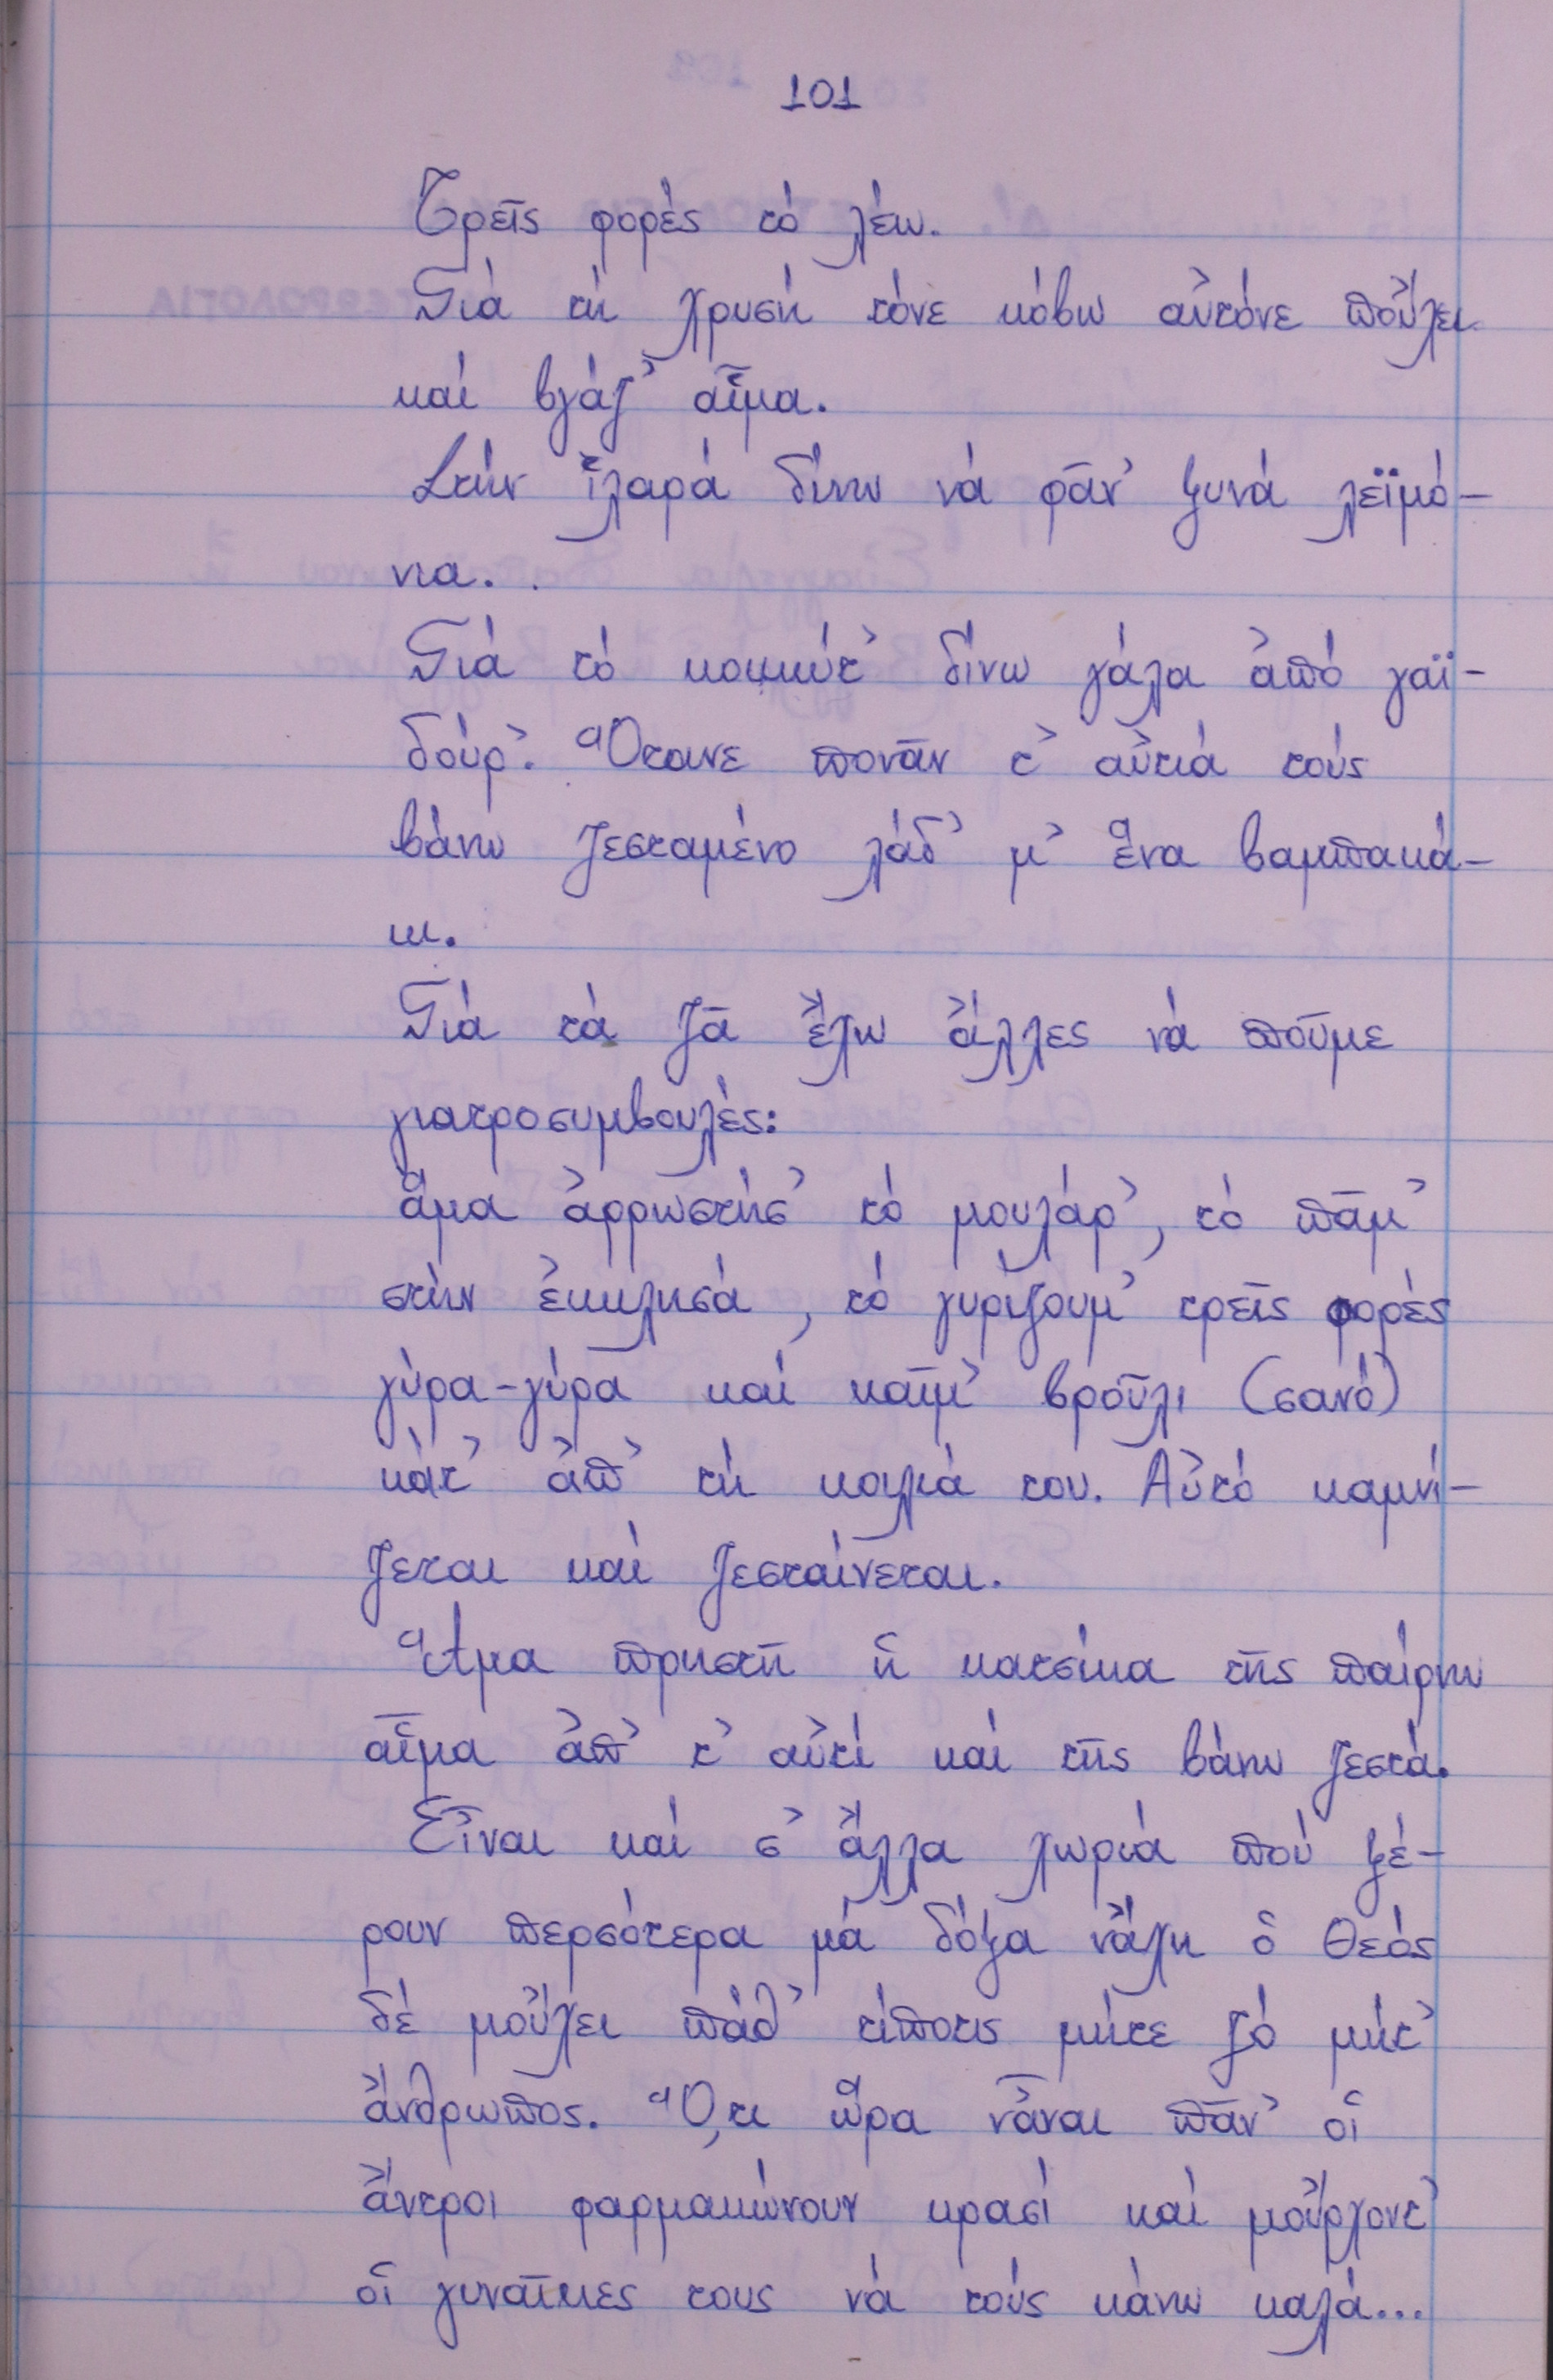 101
Τρεῖς φορές τό λέω.
Γιά τή χρυσή τόνε κόβω αὐτόνε πούχει
καί βγάζ' αἷμα.
Στήν ἵλαρά δίνω νά φᾶν' ξυνά λεϊμό-
νια.
Γιά τό κοκκύτ' δίνω γάλα ἀπό γαϊ-
δούρ'. Ὅτανε πονᾶν τ' αὐτιά τούς
βάνω ζεσταμένο λάδ' μ' ἕνα βαμπακά-
κι.
Γιά τά ζᾶ ἔχω ἄλλες νά ποῦμε
γιατροσυμβουλές:
ἅμα ἀρρωστήσ' τό μουλάρ', τό πᾶμ'
στήν ἐκκλησά, τό γυρίζουμ' τρεῖς φορές
γύρα-γύρα καί καῖμ' βροῦλι (σανό)
κάτ' ἀπ' τή κοιλιά του. Αὐτό καμνί-
ζεται καί ζεσταίνεται.
Ἅμα πρηστῆ ἡ κατσίκα τῆς παίρνω
αἷμα ἀπ' τ' αὐτί καί τῆς βάνω ζεστά.
Εἶναι καί σ' ἄλλα χωριά πού ξέ-
ρουν περσότερα μά δόξα νἄχη ὁ Θεός
δέ μοὔχει πάθ' τίποτις μήτε ζό μήτ'
ἄνθρωπος. Ὅ,τι ὥρα νἆναι πᾶν' οἱ
ἄντροι φαρμακώνουν κρασί καί μοὔρχοντ'
οἱ γυναῖκες τους νά τούς κάνω καλά...